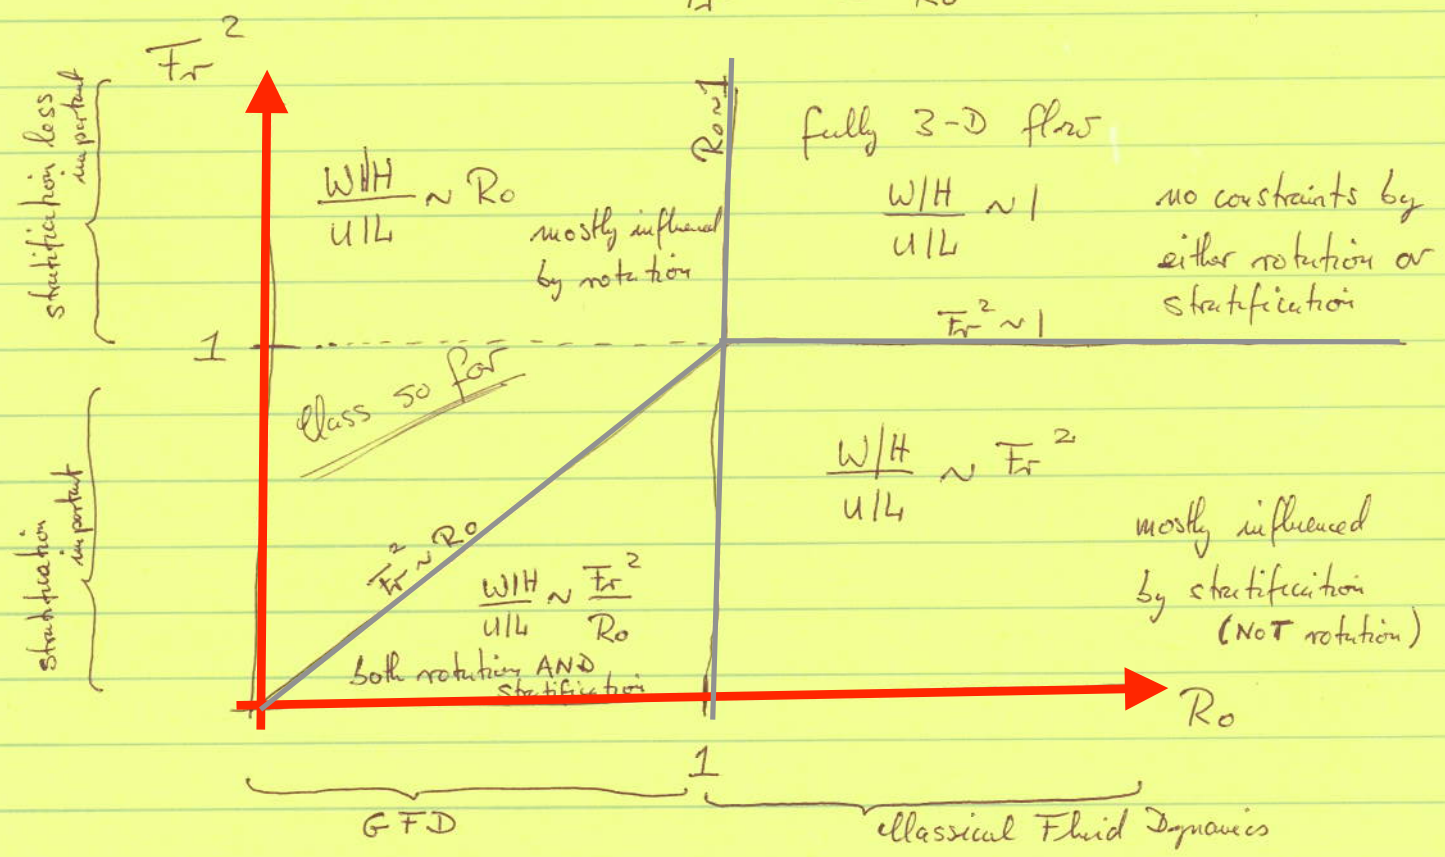 Fr   Ro
Fr²
stratification less
important
W/H
U/L
~ Ro
mostly influenced
by rotation
Ro~1
fully 3-D flow
W/H
U/L
~ 1
no constraints by
either rotation or
stratification
Fr² ~ 1
1
Class so far
stratification
important
Fr² ~ Ro
W/H
U/L
~ Fr²
Ro
both rotation AND
stratification
W/H
U/L
~ Fr²
mostly influenced
by stratification
(NOT rotation)
Ro
1
GFD
Classical Fluid Dynamics